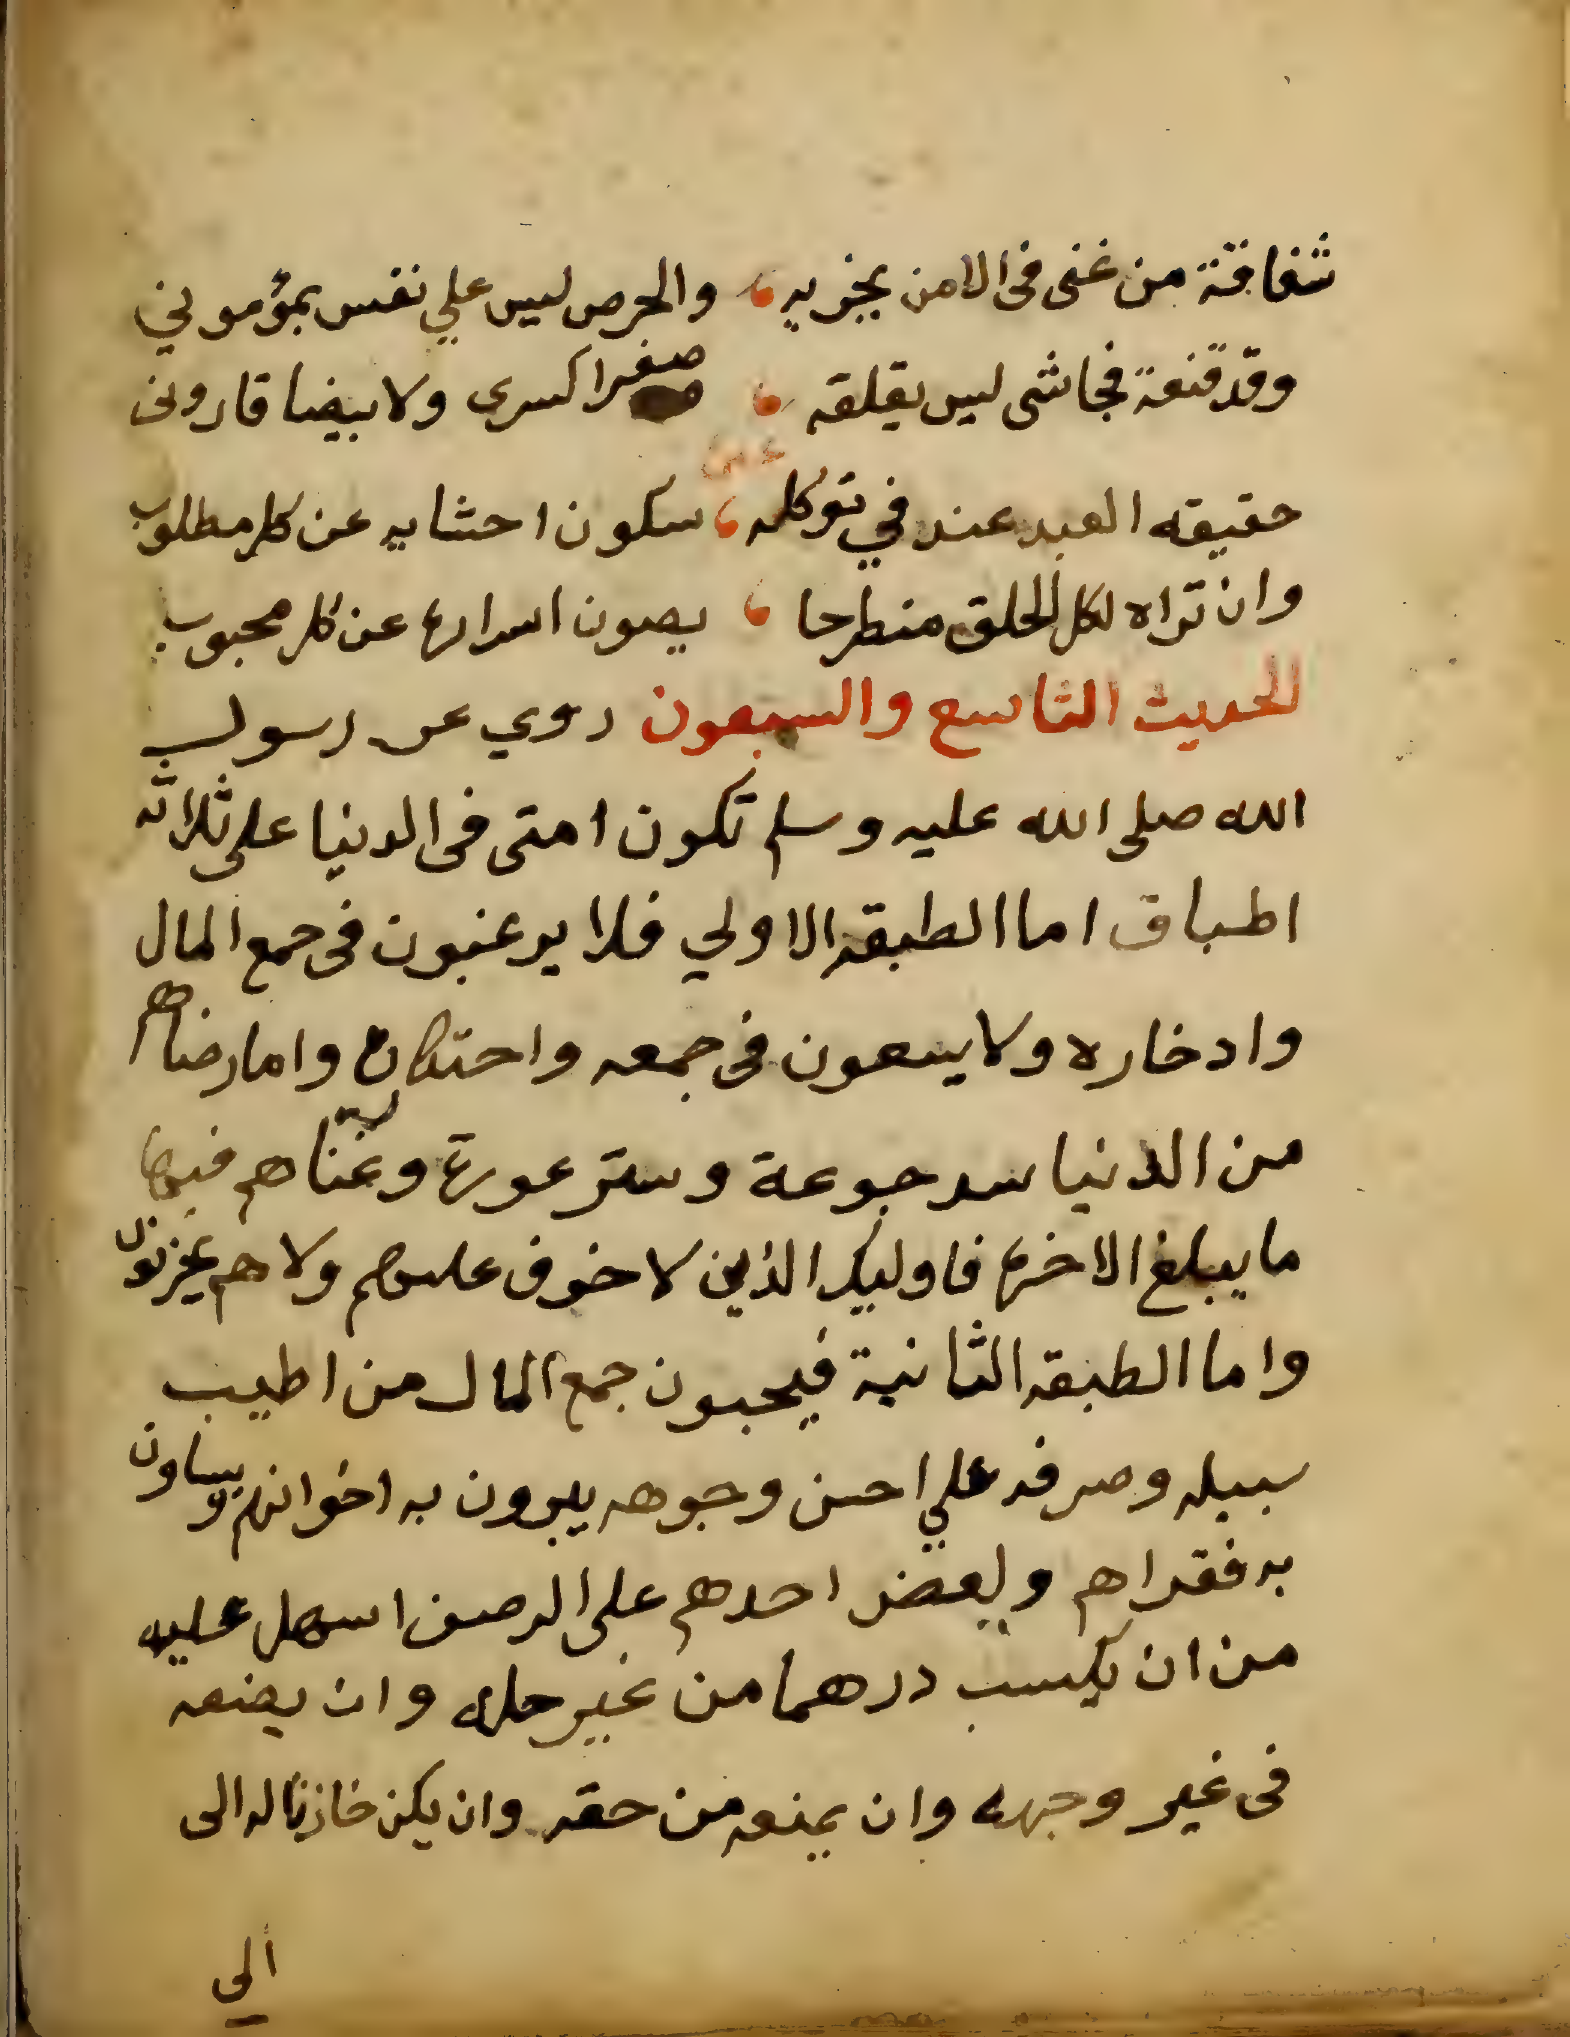 شفافتة من غنى فى الامن يجزيه ، والحرص ليس علي نفس بمؤموني
وقد قنعة فجاشى ليس يقلقه ، صفرا كسرى ولا بيضا قارونى
حقيقه العبد عندي في توكله ، سكون احشايه عن كل مطلوب
وان تراه لكل الخلق منطرحا ، يصون اسراره عن كل محبوب
الحديث التاسع والسبعون روي عن رسول
الله صلى الله عليه وسلم تكون امتى فى الدنيا على ثلاثه
اطباق اما الطبقه الاولي فلا يرغبون فى جمع المال
وادخاره ولا يسعون فى جمعه واحتكاره وامارضاهم
من الدنيا سد جوعة وستر عورة وغناهم فيها
ما يبلغ الاخرة فاوليك الذين لا خوف عليهم ولا هم يحزنون
واما الطبقه الثانية فيحبون جمع المال من اطيب
سبيله وصرفه علي احسن وجوهه يبرون به اخوانهم ويساون
به فقراهم ولعض احدهم على الرصف اسهل عليه
من ان يكسب درهما من غير حله وان يضعه
فى غير وجهه وان يمنعه من حقه وان يكن خازنا له الى
الي